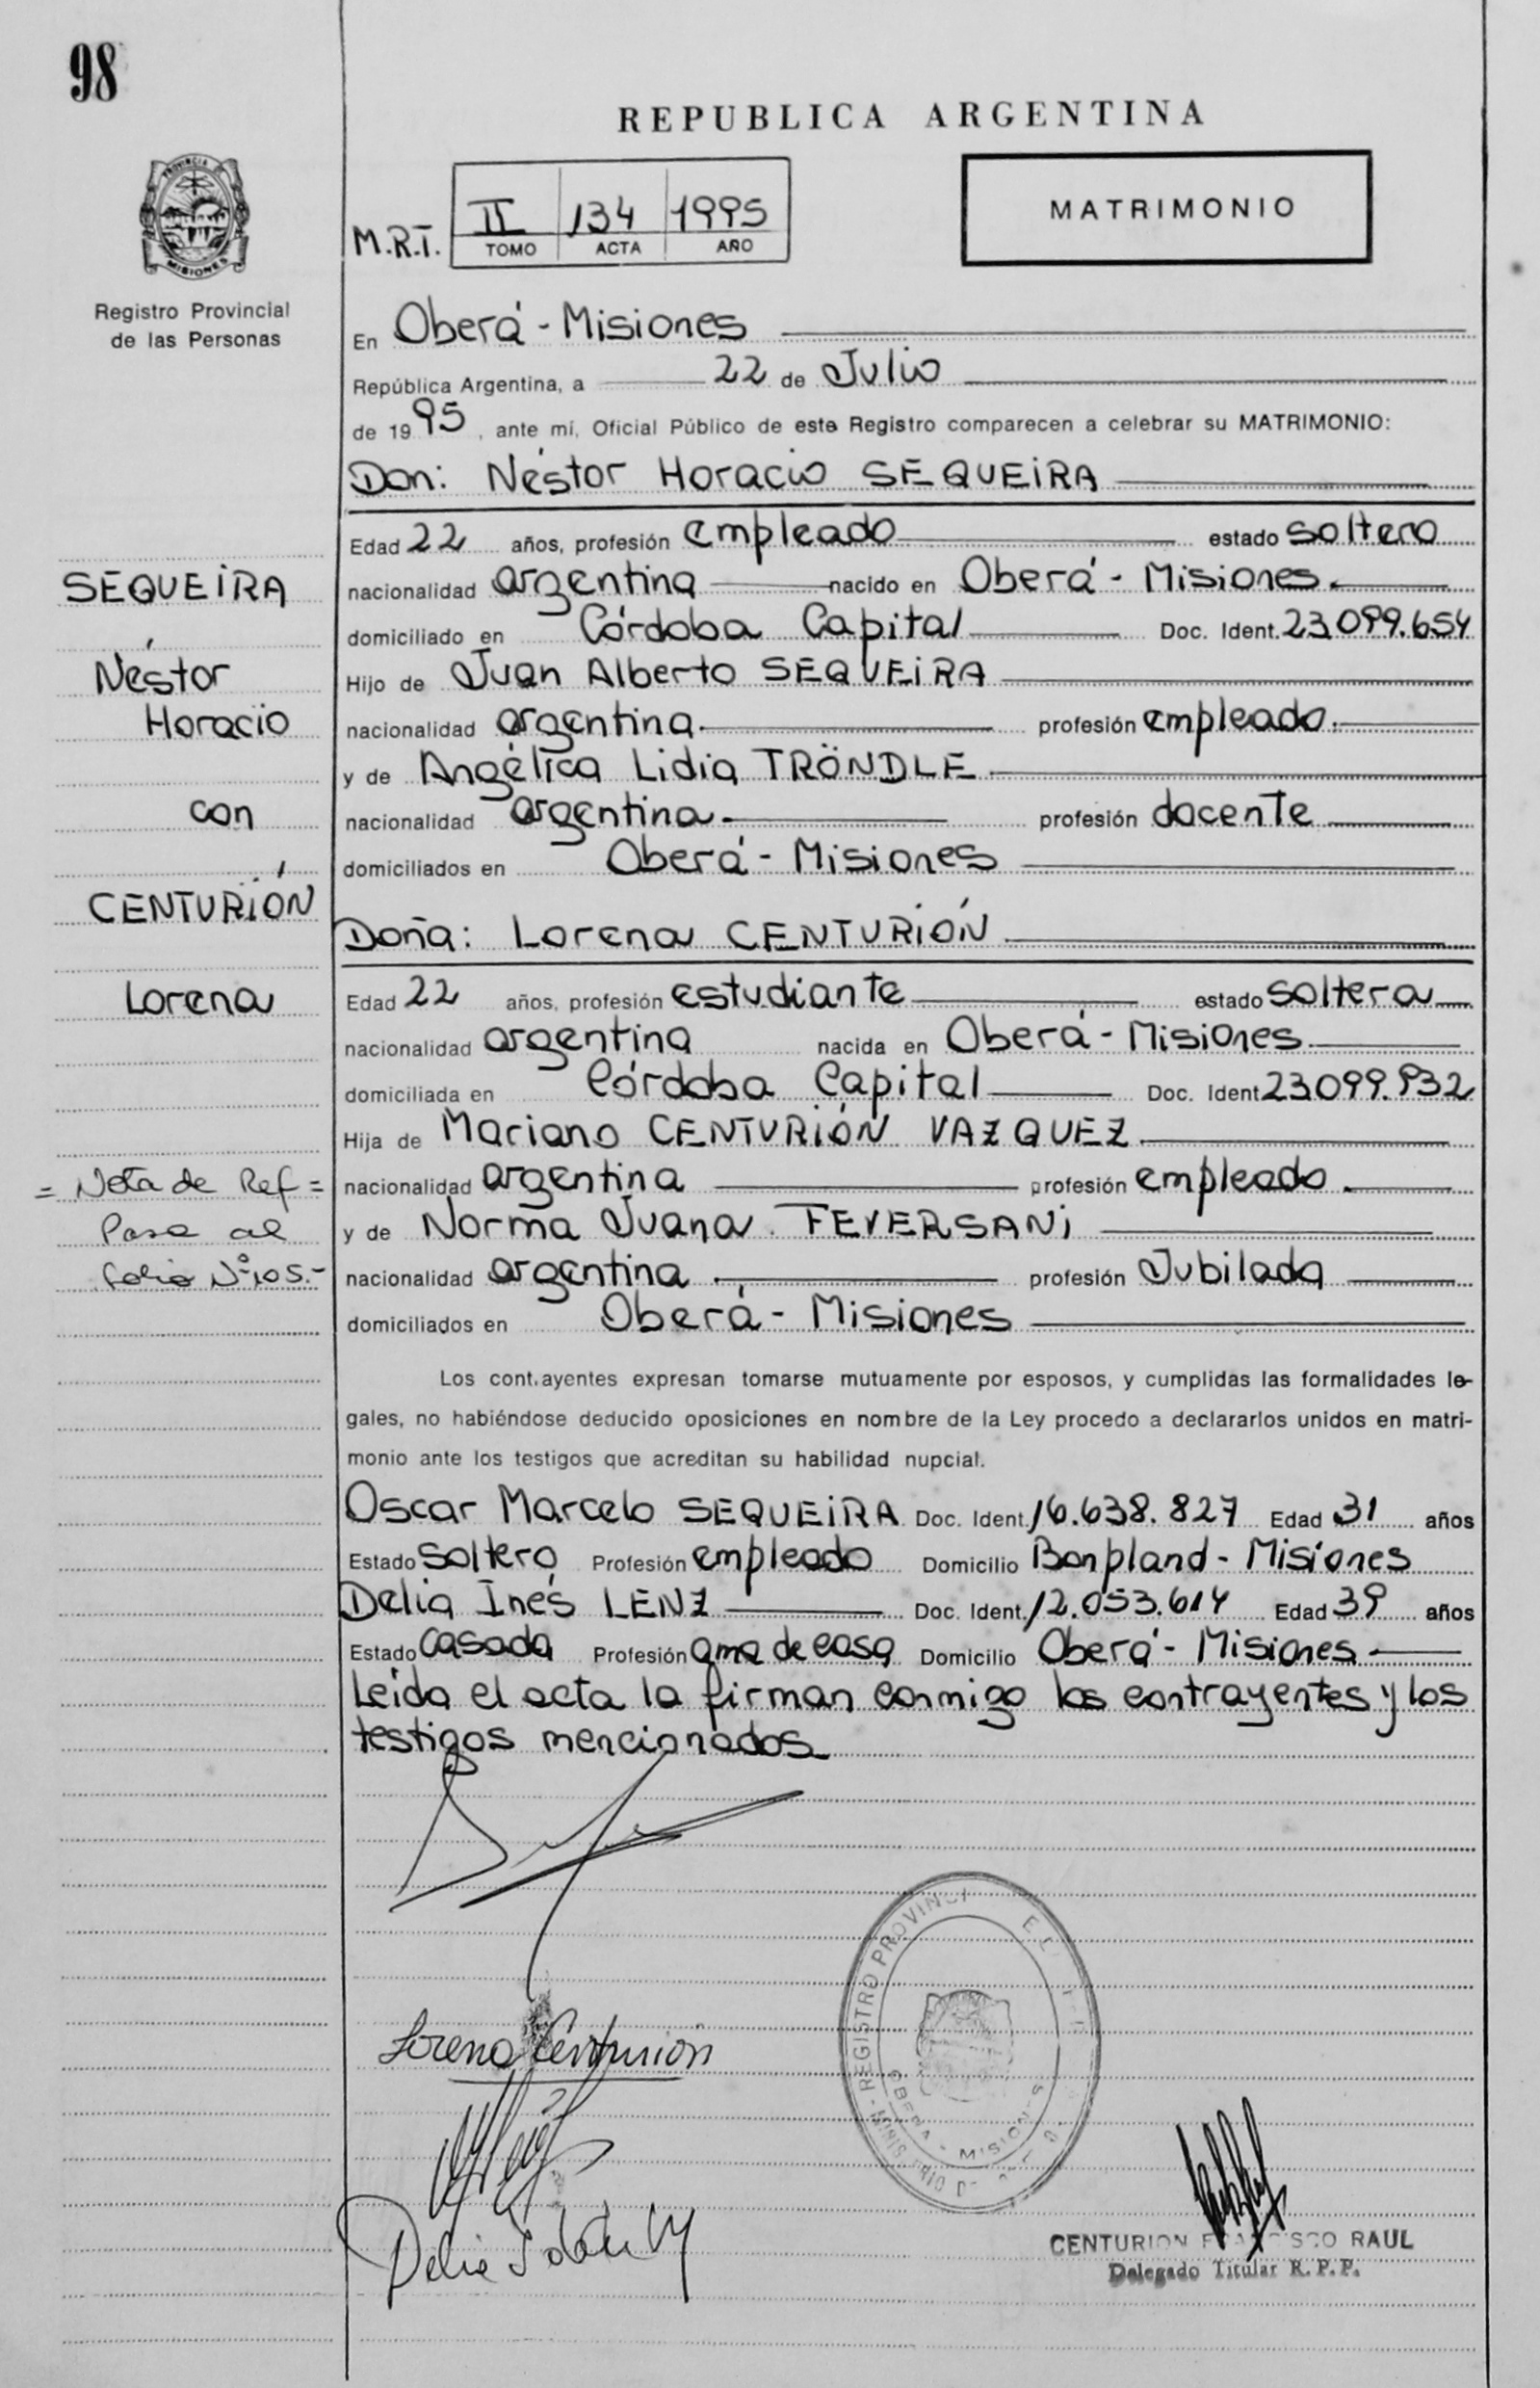 98
REPUBLICA ARGENTINA
PROVINCIA
MISIONES
Registro Provincial
de las Personas
M.R.T. II 134 1995
TOMO ACTA AÑO
MATRIMONIO
En Oberá - Misiones
República Argentina, a 22 de Julio
de 1995, ante mí, Oficial Público de este Registro comparecen a celebrar su MATRIMONIO:
Don: Néstor Horacio SEQUEIRA
Edad 22 años, profesión empleado estado soltero
nacionalidad argentina nacido en Oberá - Misiones.
domiciliado en Córdoba Capital Doc. Ident. 23.099.654
Hijo de Juan Alberto SEQUEIRA
nacionalidad argentina. profesión empleado.
y de Angélica Lidia TRÖNDLE
nacionalidad argentina. profesión docente
domiciliados en Oberá - Misiones
Doña: Lorena CENTURIÓN
Edad 22 años, profesión estudiante estado soltera
nacionalidad argentina nacida en Oberá - Misiones
domiciliada en Córdoba Capital Doc. Ident 23.099.932
Hija de Mariano CENTURIÓN VAZQUEZ
nacionalidad argentina profesión empleado.
y de Norma Juana FEVERSANI
nacionalidad argentina. profesión Jubilada
domiciliados en Oberá - Misiones
SEQUEIRA
Néstor
Horacio
con
CENTURIÓN
Lorena
= Nota de Ref =
Pasa al
folio Nº 105.-
Los cont.ayentes expresan tomarse mutuamente por esposos, y cumplidas las formalidades le-
gales, no habiéndose deducido oposiciones en nombre de la Ley procedo a declararlos unidos en matri-
monio ante los testigos que acreditan su habilidad nupcial.
Oscar Marcelo SEQUEIRA Doc. Ident. 16.638.827 Edad 31 años
Estado soltero Profesión empleado Domicilio Bonpland - Misiones
Delia Inés LENZ Doc. Ident. 12.053.614 Edad 39 años
Estado casada Profesión ama de casa Domicilio Oberá - Misiones
Leída el acta la firman conmigo los contrayentes y los
testigos mencionados
Lorena Centurión
REGISTRO PROVINCI
OBERA - MISIONES
Delia
CENTURION FRANCISCO RAUL
Delegado Titular R. P. P.